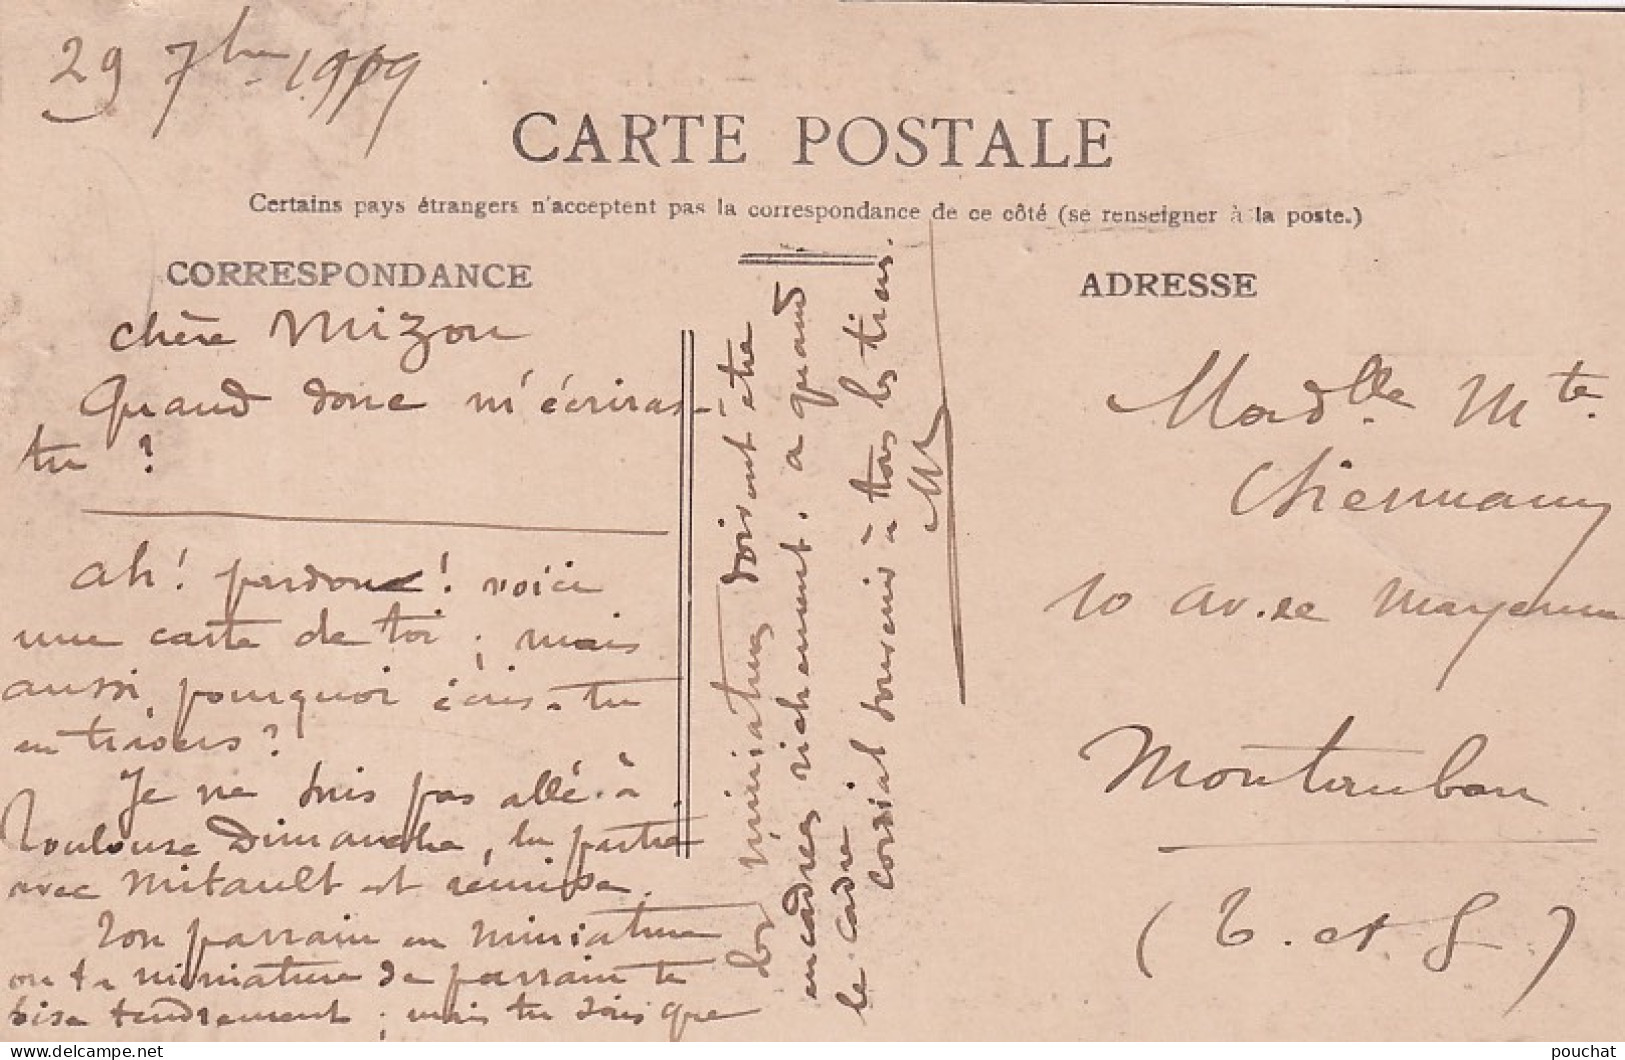 29 7bre 1909
CARTE POSTALE
Certains pays étrangers n'acceptent pas la correspondance de ce côté (se renseigner à la poste.)
CORRESPONDANCE
chère Mizou
Quand donc m'écriras-
tu ?
ah ! pardon ! voici
une carte de toi ; mais
aussi, pourquoi écris-tu
en travers ?
Je ne suis pas allé à
Toulouse Dimanche, la partie
avec Mitault est remise.
Ton parrain en miniature
ou ta miniature de parrain te
bise tendrement ; mais tu sais que
les miniatures doivent être
encadrées richement. a quand
le cadre.
Cordial souvenir à tous les tiens.
ADRESSE
Madlle Mte
10 av. de Mayenne
Montauban
(T. et G)
pouchat